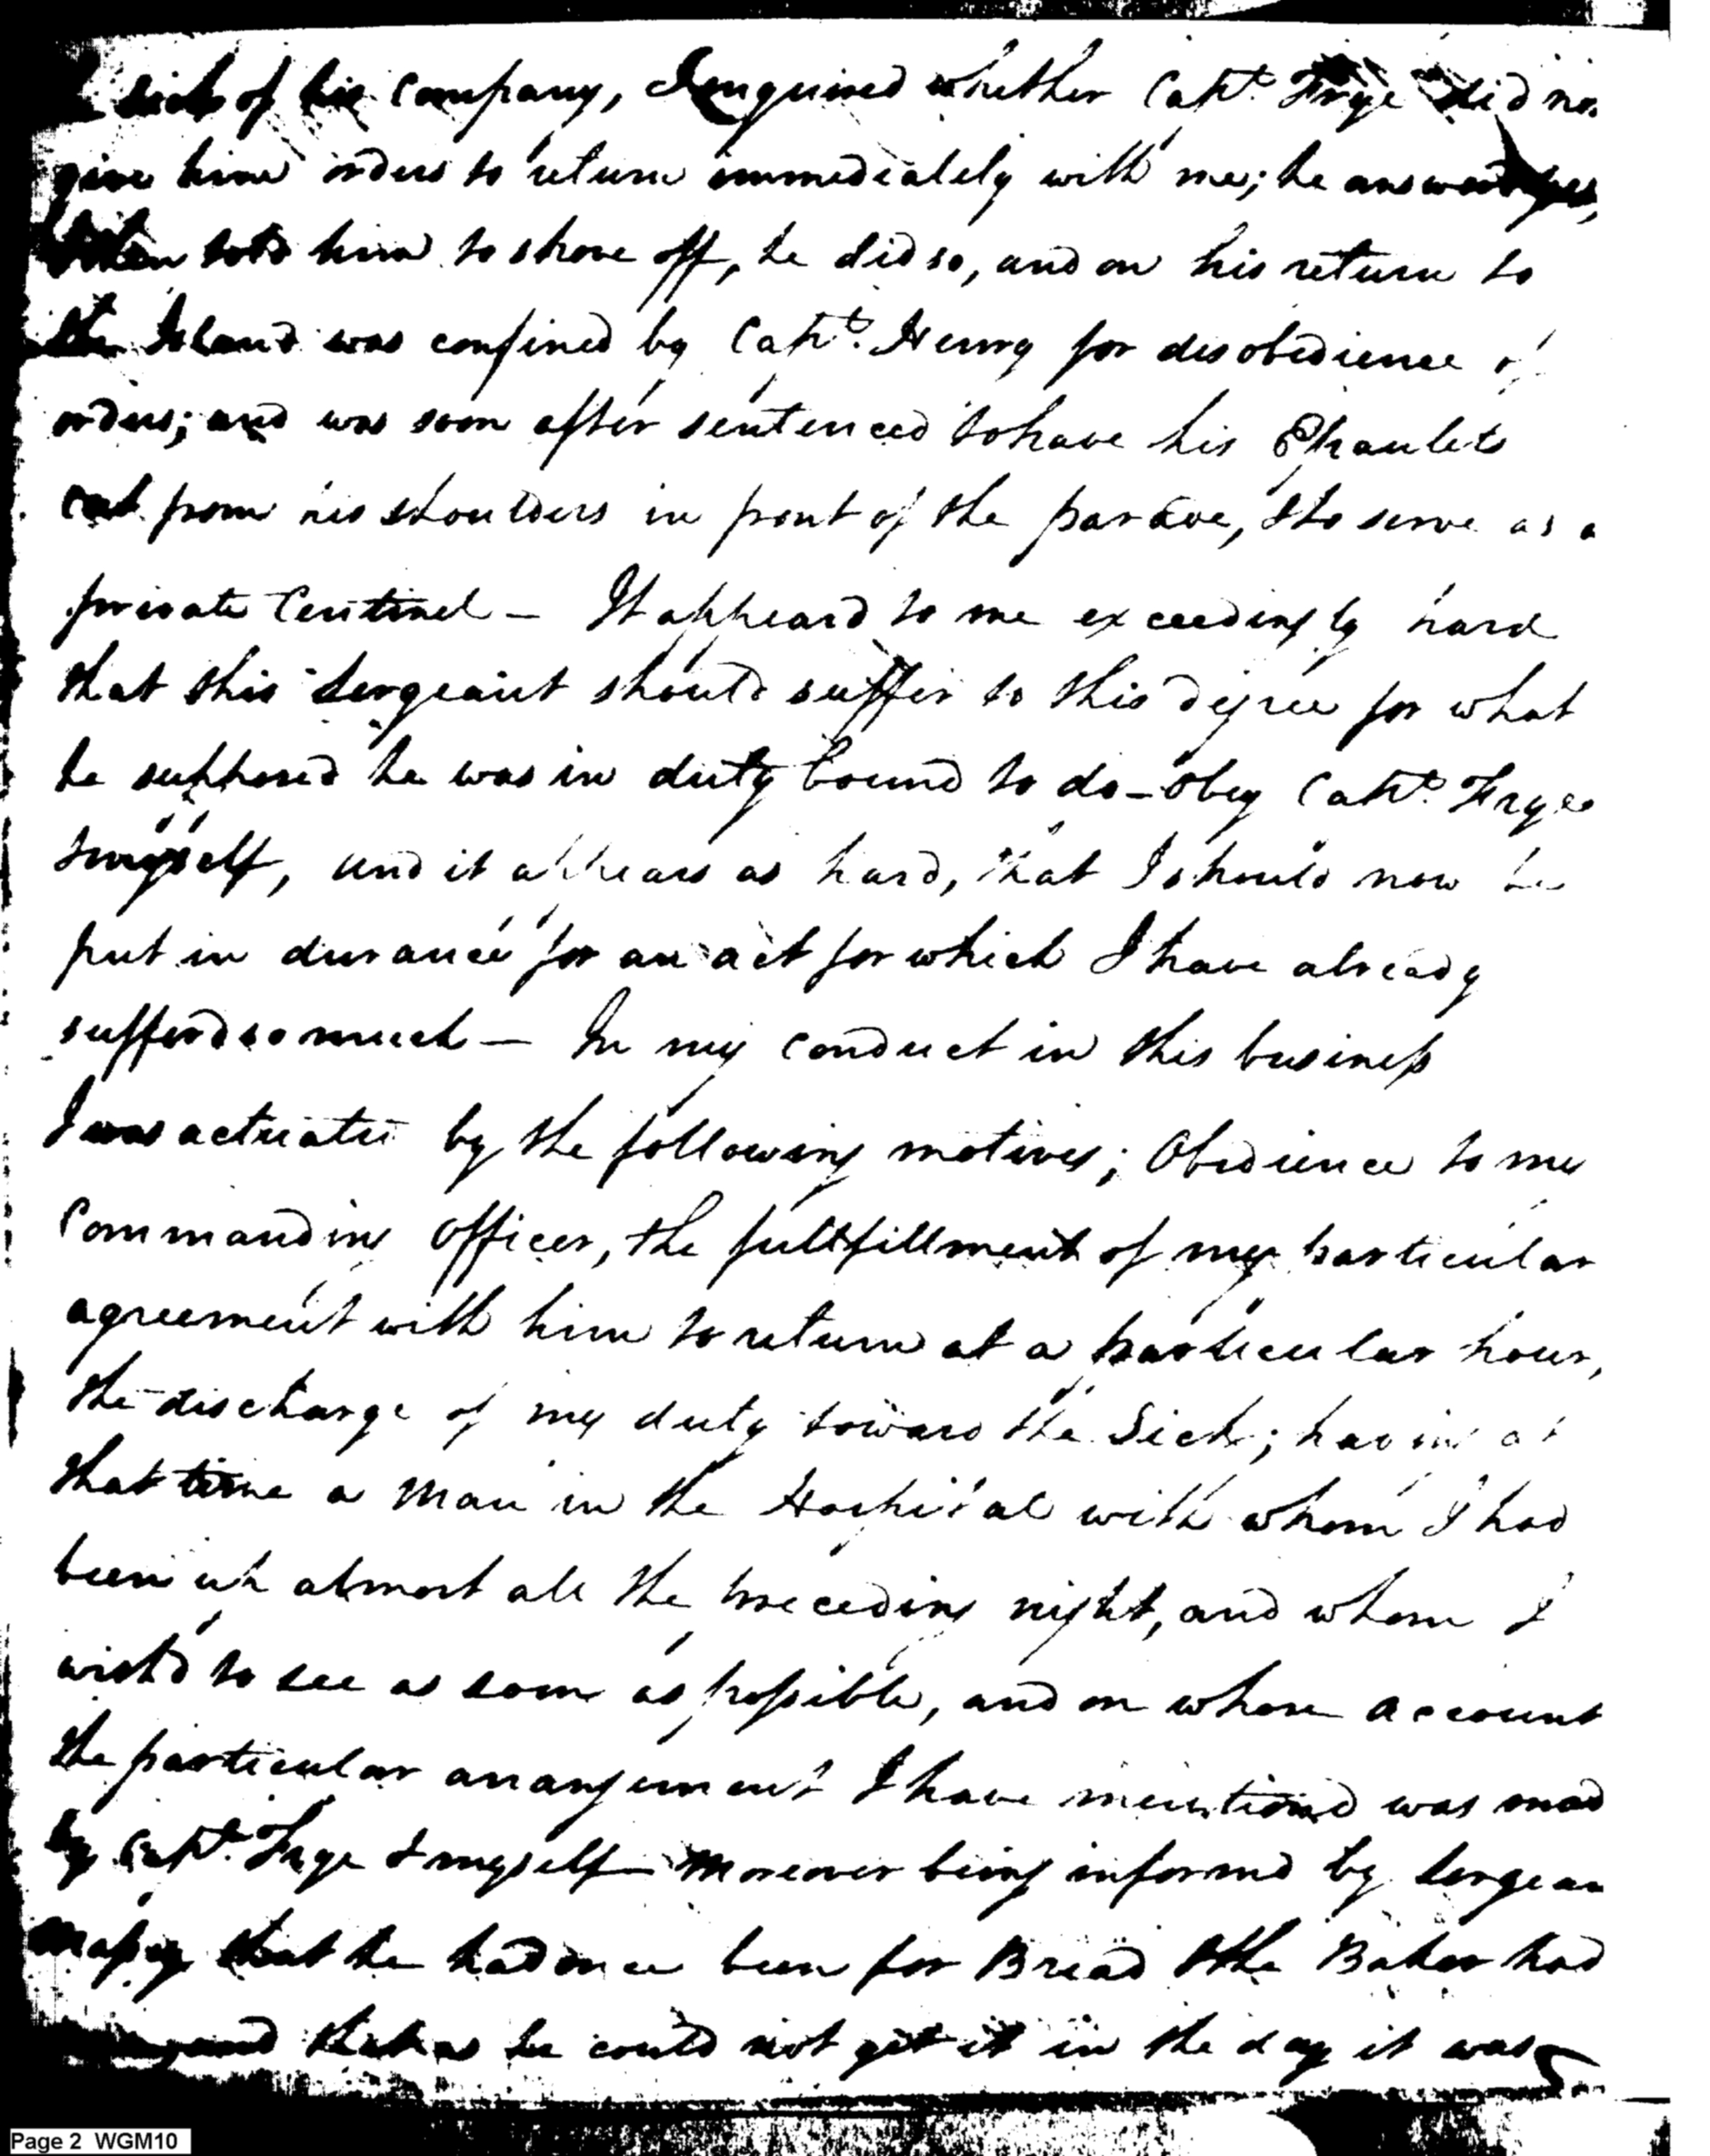 sick of his Company, I enquired whether Capt. Frye did no
give him orders to return immediately with me; he answerd yes,
I then told him to shove off, he did so, and on his return to
the Island was confined by Capt. Henry for disobedience of
orders; and was soon after sentenced to have his Epaulets
cut from his shoulders in front of the parade, & to serve as a
private Centinel — It appeard to me exceedingly hard
that this Sergeant should suffer to this degree for what
he supposed he was in duty bound to do — obey Capt. Frye
& myself, and it appears as hard, that I should now be
put in durance for an act for which I have already
sufferd so much — In my conduct in this business
I was actuated by the following motives; Obedience to my
Commanding Officer, the fullfillment of my particular
agreement with him to return at a particular hour,
the discharge of my duty toward the Sick; having at
that time a man in the Hospital with whom I had
been up almost all the preceding night, and whom I
wish'd to see as soon as possible, and on whose account
the particular arrangement I have mentiond was mad
by Capt. Frye & myself — Moreover being informd by Sergean
Massey that he had once been for Bread & the Baker had
that as he could not get it in the day it was
Page 2 WGM10